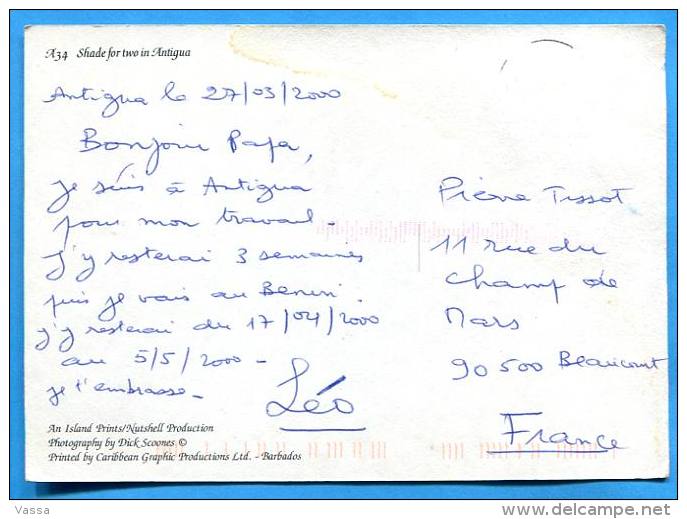 A34 Shade for two in Antigua
Antigua le 27/03/2000
Bonjour Papa,
je suis à Antigua
pour mon travail -
J'y resterai 3 semaines
puis je vais au Benin.
j'y resterai du 17/04/2000
au 5/5/2000 -
je t'embrasse -
Léo
Pierre Tissot
11 rue du
Champ de
Mars
90 500 Beaucourt
France
An Island Prints/Nutshell Production
Photography by Dick Scoones ©
Printed by Caribbean Graphic Productions Ltd. - Barbados
Vassa
© delcampe.net